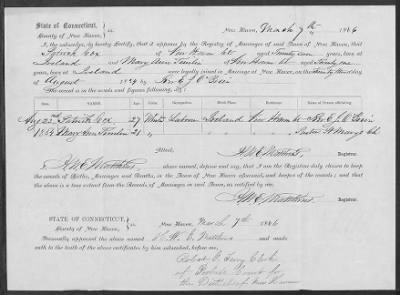 State of Connecticut,
County of New Haven, ss. New Haven, March 7th 1866
I, the subscriber, do hereby Certify, that it appears by the Registry of Marriages of said Town of New Haven, that
Patrick Cox of New Haven Ct aged Twenty seven years, born at
Ireland and Mary Ann of New Haven aged Twenty one
years, born at Ireland were legally joined in Marriage at New Haven, on the Twenty third day of
August 1854 by Rev. E. J. O'
The record is in the words and figures following, viz:
Date. NAMES. Age. Color. Occupation. Birth Place. Residence.
Aug 23d Patrick Cox 27 White Laborer Ireland New Haven Ct Rev. E. J. O'
1854 Mary Ann 21 " " " Pastor St Mary's Ch
Attest, Registrar.
I, above named, depose and say, that I am the Registrar duly chosen to keep
the records of Births, Marriages and Deaths, in the Town of New Haven aforesaid, and keeper of the records; and that
the above is a true extract from the Records of Marriages in said Town, as certified by me.
Registrar.
STATE OF CONNECTICUT,
County of New Haven, ss. New Haven, March 7th 1866
Personally appeared the above named and made
oath to the truth of the above certificates by him subscribed, before me.
Clerk
of Probate Court for
the District of New Haven